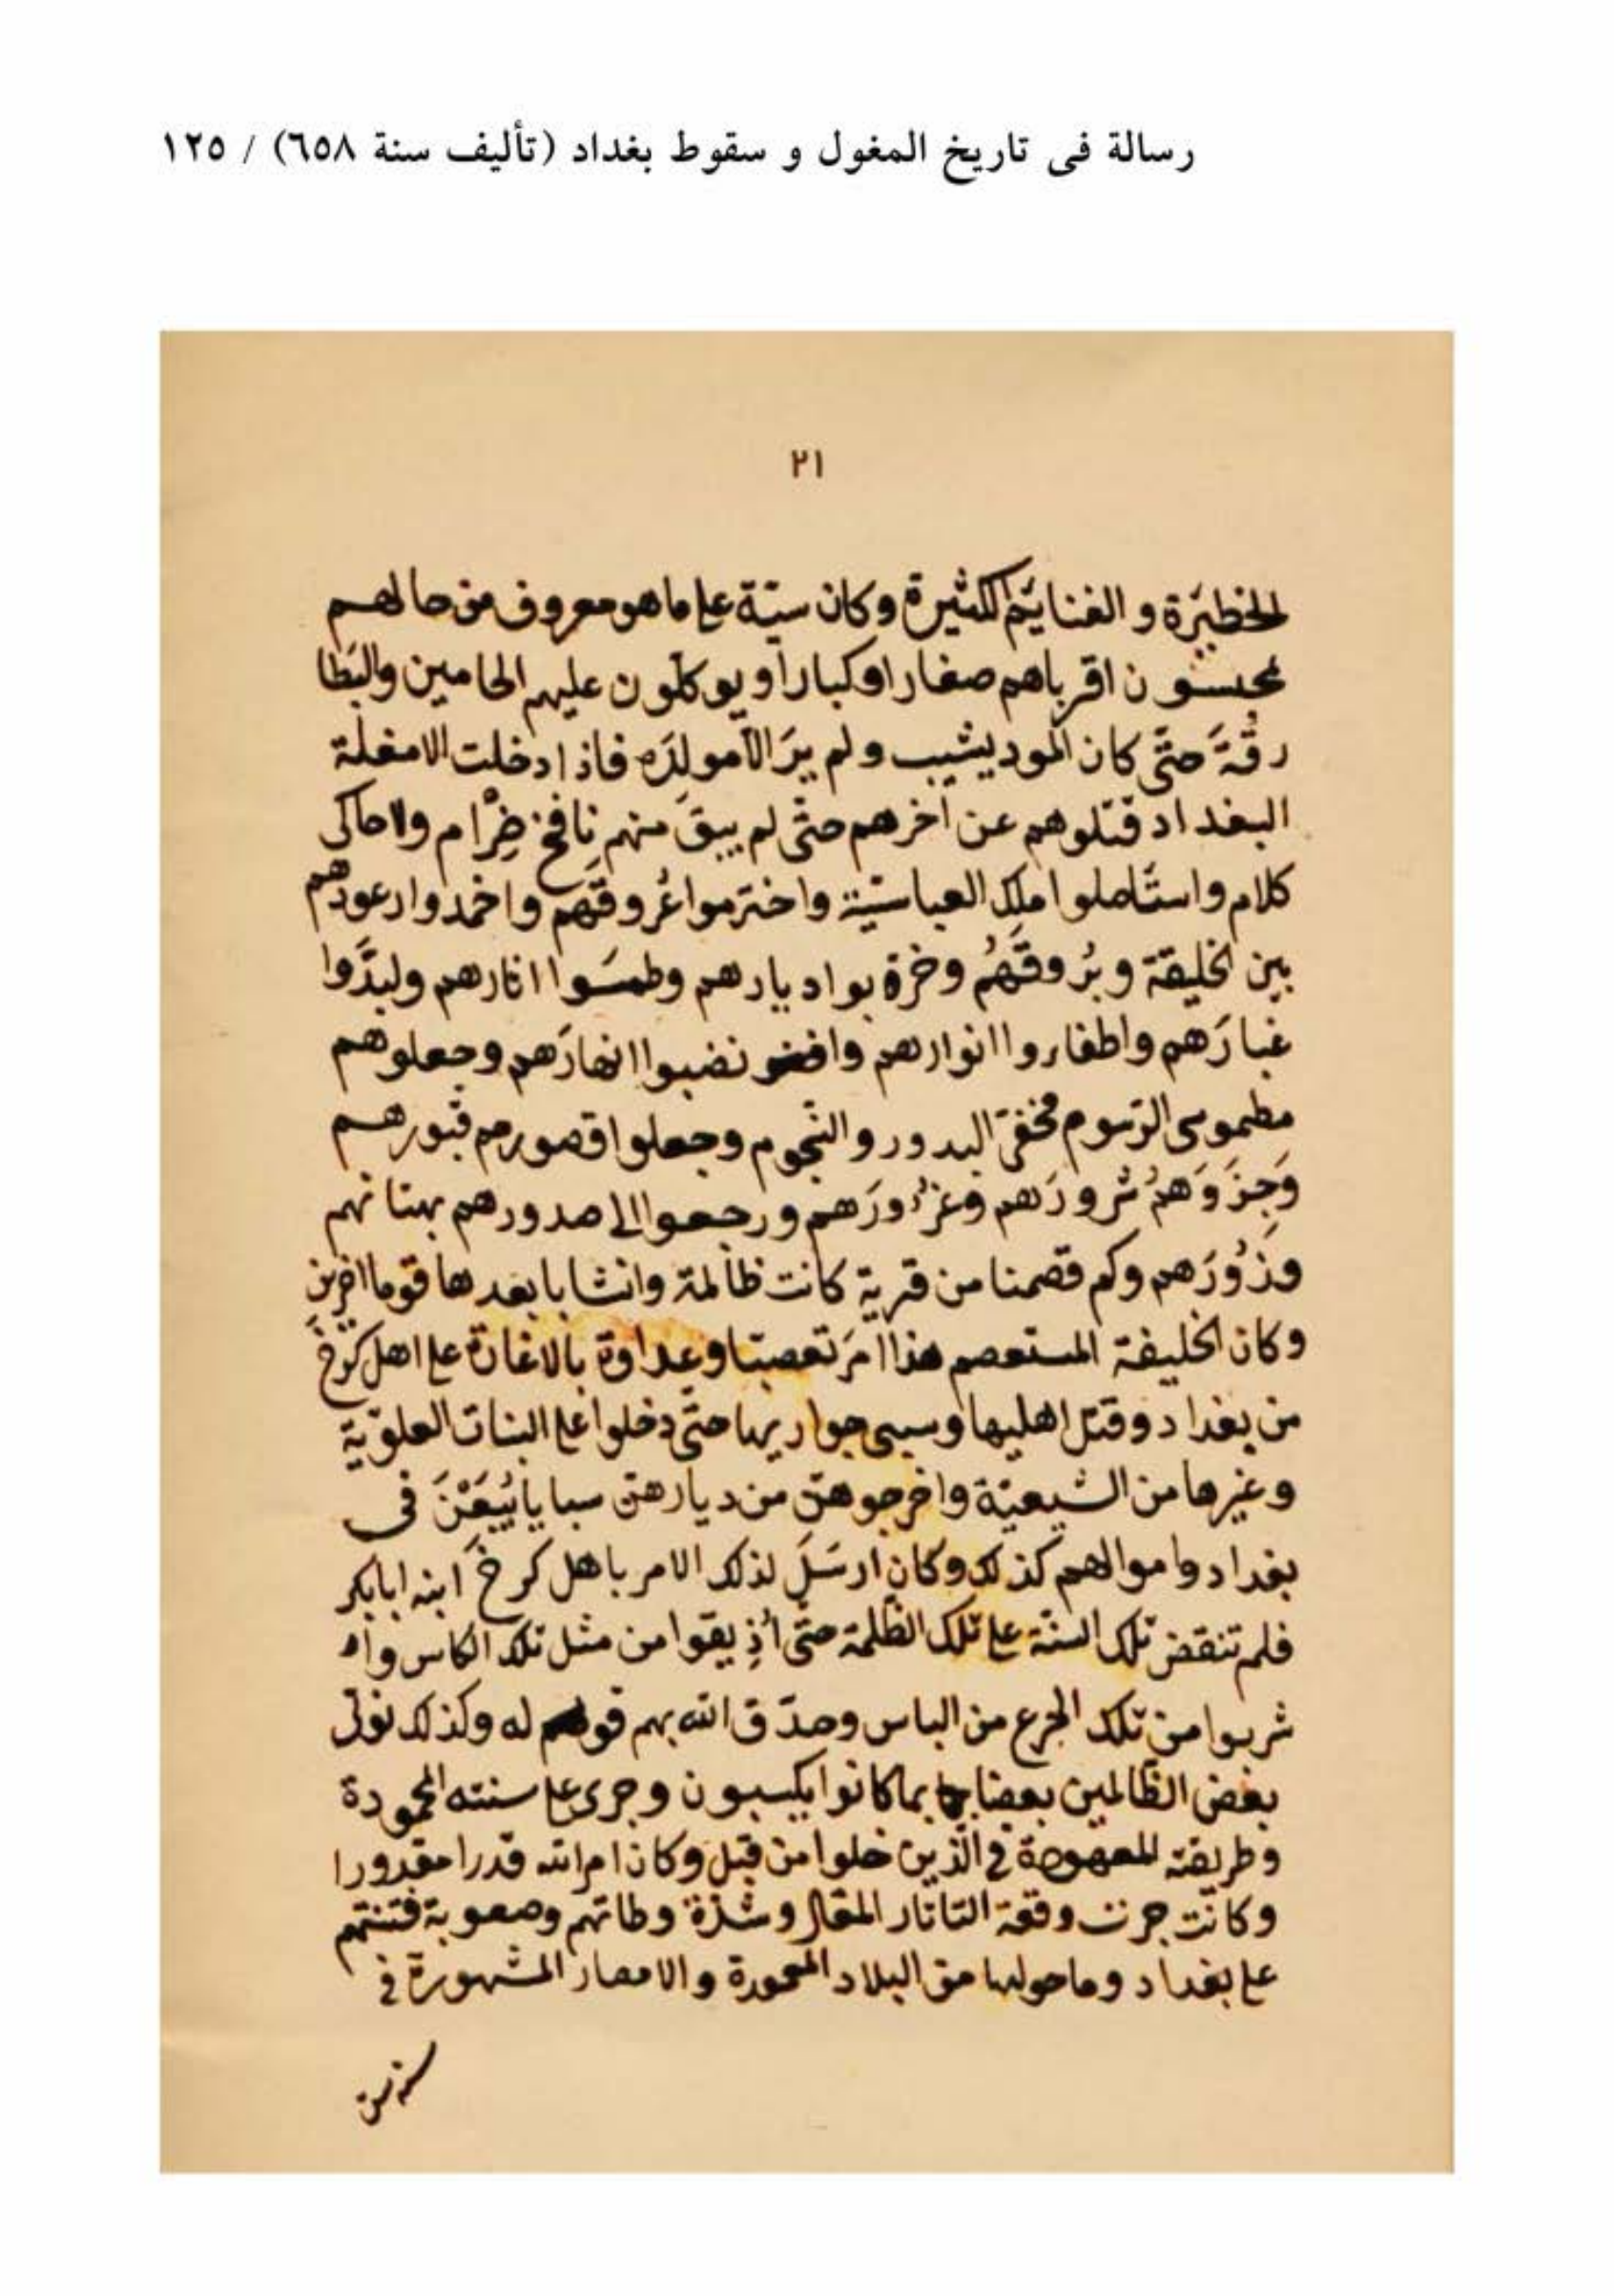 رسالة فی تاریخ المغول و سقوط بغداد (تألیف سنة ٦٥٨) / ١٢٥
٢١
الخطيَرة و الغنايَم الكثيرة وكان سيّة على ما هو معروف من حالهم
يحبسون اقرباهم صغارا وكبارا و يوكلون عليهم الحامين والبَطا
رقُةَ حتَّى كان المود يشيب ولم يرَ الّا مولِدَه فاذا دخلت الامغلة
البغداد قتلوهم عن آخرهم حتّى لم يبقَ منهم نافخ ضِرْام ولا حاكى
كلام واستَاصلوا ملك العباسّية واخترموا عُروقَهم واخمدوا رعودهم
بين الخليقة وبُروقَهُم وخرة بوا ديارهم وطمسَوا اثارهم ولبدَّوا
غبارَهم واطفاروا انوارهم نضبوا انهارَهم وجعلوهم
مطموسى الرّسوم مخفىّ البدور و النّجوم وجعلوا قصورهم قبورهم
وَجِزَوَهمُ شرورَهم وغزُورَهم ورجعوا الى صدورهم بهتانهم
وزُورَهم وكم قصمنا من قرية كانت ظالمة وانشانا بعدها قوما اخرين
وكان الخليفة المستعصم هذا امَر تعصبّا وعداوة بالاغارة على اهل كرْخَ
من بغداد وقتل اهليها وسبى جواريها حتّى دخلوا على البنات العلوّية
وغيرها من الشيعيّة واخرجوهنّ من ديارهنّ سبايا يُبَعْنَ فى
بغداد واموالهم كذلك وكان ارسَلَ لذلك الامر باهل كرخَ ابنه ابابكر
فلم تنقض تلك السنّة على تلك الظّلمة حتّى أذِيقوا من مثل تلك الكاس واه
شربوا من تلك الجرع من الباس وصدّق الله بهم له وكذلك نولّى
بعض الظّالمين بعضا بما كانوا يكسبون وجرى على سنته المحمودة
وطريقته المعهودة فى الّذين خلوا من قبل وكان امر الله قدرا مقدورا
وكانت جرت وقعة التاتار المغال وشدّة وطاتهم وصعوبة فتنتهم
على بغداد وما حولها من البلاد المعمورة والامصار المشهورة فى